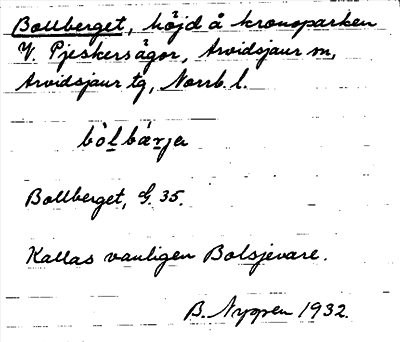 Bollberget, höjd å kronoparken
V. Pjeskersågor, Arvidsjaur sn,
Arvidsjaur tg, Norrb. l.
bòlbárjə
Bollberget, G. 35.
Kallas vanligen Bolsjevare.
B. Nyqren 1932.